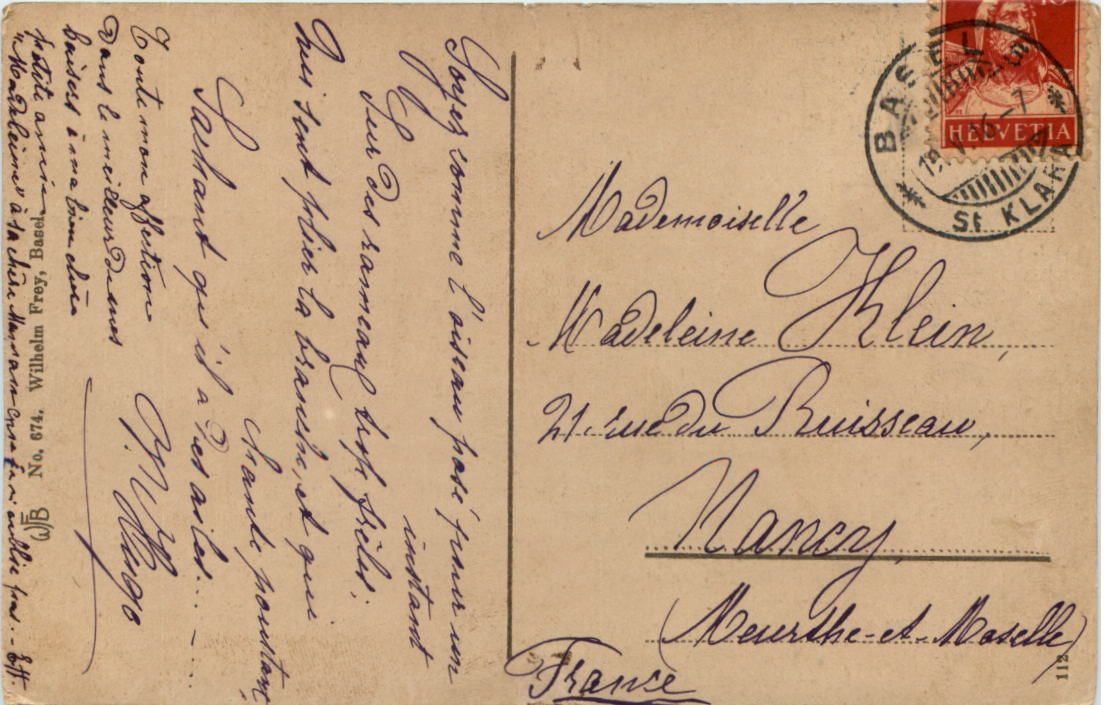 Soyez comme l'oiseau posé pour un
instant
Sur des rameaux trop frêles;
Qui sent plier la branche, et qui
chante pourtant,
Sachant qu'il a des ailes....
V. Hugo
Toute mon affection
Dans le meilleur de mes
baisers à ma bien chère
petite amie
"Madeleine" à sa chère Maman que je n'oublie pas. -
No. 674. Wilhelm Frey, Basel.
WFB
HELVETIA
10
BASEL 8
St. KLARA
Mademoiselle
Madeleine Klein,
21. rue du Ruisseau,
Nancy
(Meurthe-et-Moselle)
France
112